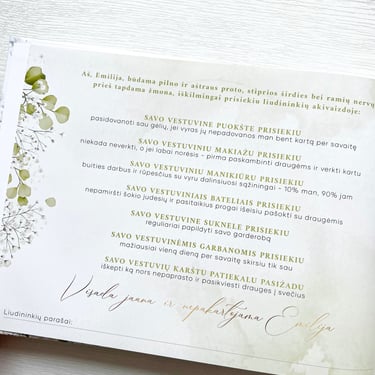 Aš, Emilija, būdama pilno ir aštraus proto, stiprios širdies bei ramių nervų
prieš tapdama žmona, iškilmingai prisiekiu liudininkių akivaizdoje:
SAVO VESTUVINE PUOKŠTE PRISIEKIU
pasidovanoti sau gėlių, jei vyras jų nepadovanos man bent kartą per savaitę
SAVO VESTUVINIU MAKIAŽU PRISIEKIU
niekada neverkti, o jei labai norėsis - pirma paskambinti draugėms ir verkti kartu
SAVO VESTUVINIU MANIKIŪRU PRISIEKIU
buities darbus ir rūpesčius su vyru dalinsiuosi sąžiningai - 10% man, 90% jam
SAVO VESTUVINIAIS BATELIAIS PRISIEKIU
nepamiršti šokio judesių ir pasitaikius progai išeisiu pašokti su draugėmis
SAVO VESTUVINE SUKNELE PRISIEKIU
reguliariai papildyti savo garderobą
SAVO VESTUVINĖMIS GARBANOMIS PRISIEKIU
mažiausiai vieną dieną per savaitę skirsiu tik sau
SAVO VESTUVIŲ KARŠTU PATIEKALU PASIŽADU
iškepti ką nors nepaprasto ir pasikviesti drauges į svečius
Visada jauna ir nepakartojama Emilija
Liudininkių parašai: